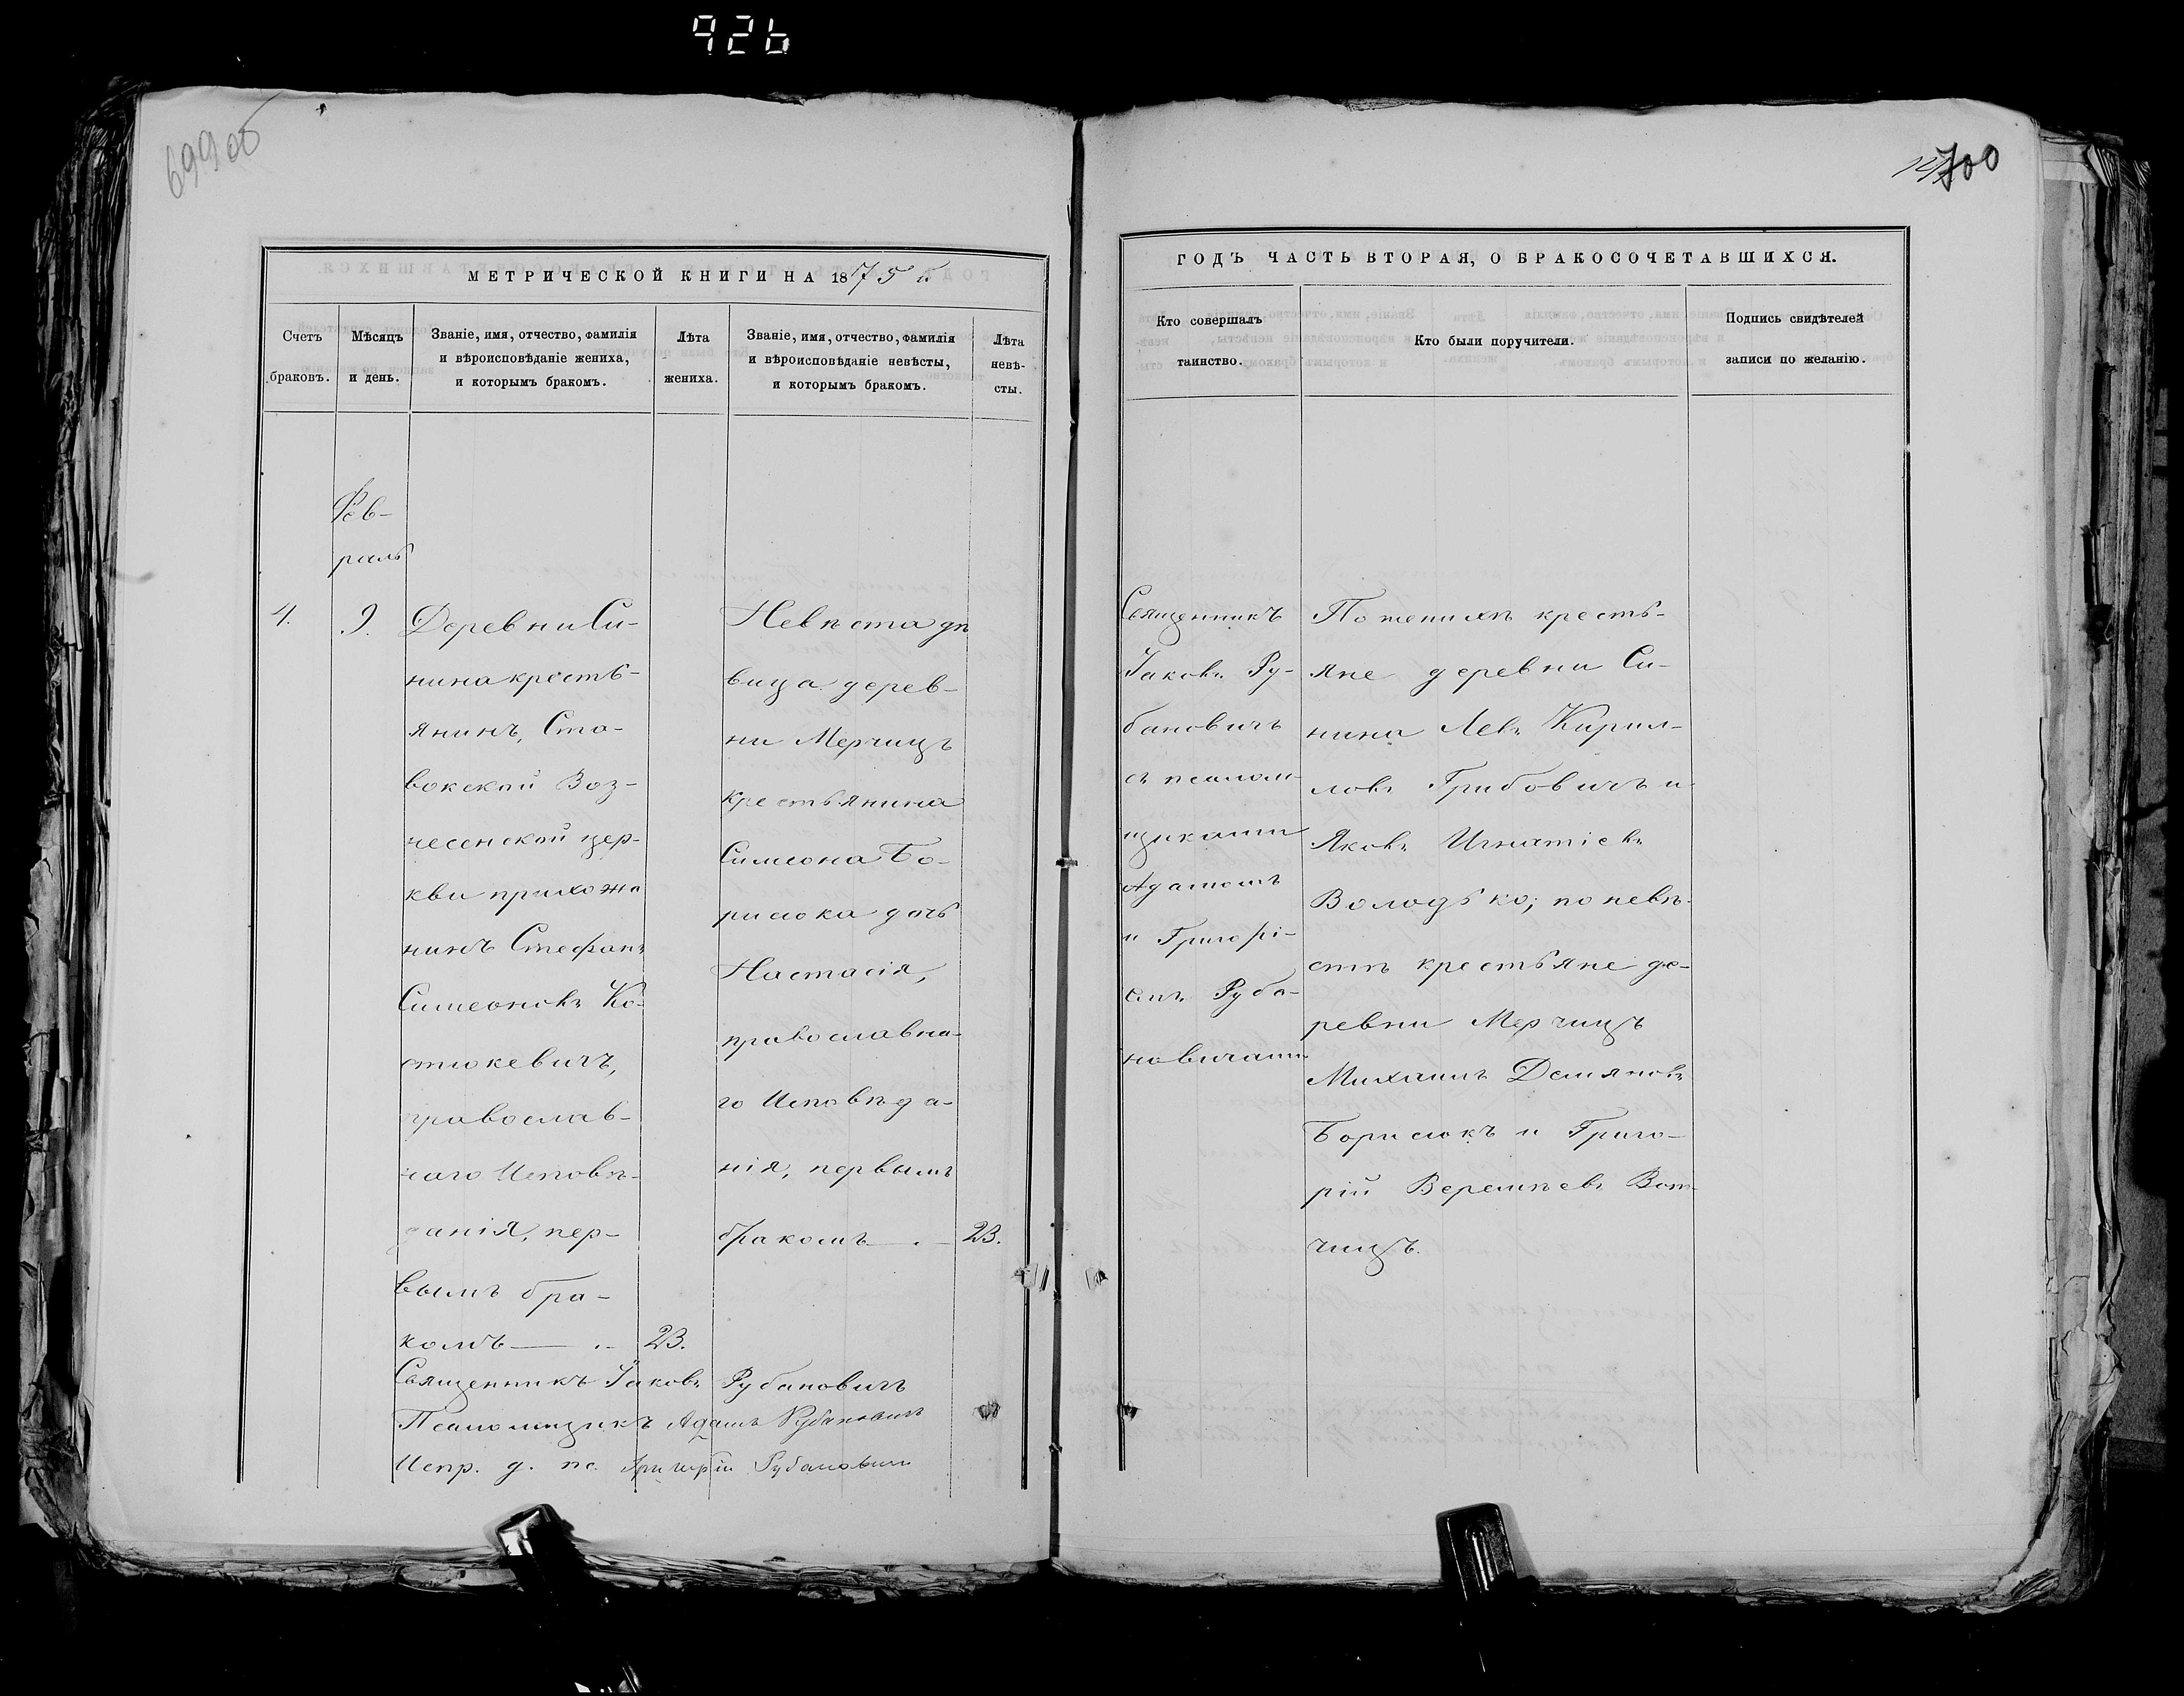 926
699 об
700
МЕТРИЧЕСКОЙ КНИГИ НА 1875 й
Счетъ браковъ.
Мѣсяцъ и день.
Званіе, имя, отчество, фамилія
и вѣроисповѣданіе жениха,
и которымъ бракомъ.
Лѣта жениха.
Званіе, имя, отчество, фамилія
и вѣроисповѣданіе невѣсты,
и которымъ бракомъ.
Лѣта невѣ-
сты.
Фев-
раль
4.
9.
Деревни Си-
нина кресть-
янинъ, Ста-
вокской Воз-
несенской цер-
кви прихожа
нинъ Стефанъ
Симеоновъ Ко-
стюкевичъ,
православ-
наго Исповѣ-
данія, пер-
вымъ бра-
комъ — . -
23.
Невѣста дѣ
вица дерев-
ни Мерчицъ
крестьянина
Симеона Бо-
рисюка дочь
Настасія,
православна-
го Исповѣда-
нія, первымъ
бракомъ — . —
23.
Священникъ Іаковъ Рубановичъ
Псаломщикъ Адамъ Рубановичъ
Испр. д. пс. Григорій Рубановичъ
ГОДЪ ЧАСТЬ ВТОРАЯ, О БРАКОСОЧЕТАВШИХСЯ.
Кто совершалъ
таинство.
Кто были поручители.
Подпись свидѣтелей
записи по желанію.
Священникъ
Іаковъ Ру-
бановичъ
съ псалом-
щиками
Адамомъ
и Григорі-
емъ Руба-
новичами
По женихѣ кресть-
яне деревни Си-
нина Левъ Кирил-
ловъ Грибовичъ и
Яковъ Игнатіевъ
Володько; по невѣ-
стѣ крестьяне де-
ревни Мерчицъ
Михаилъ Демяновъ
Борисюкъ и Григо-
рій Веремѣевъ Вот-
чицъ.